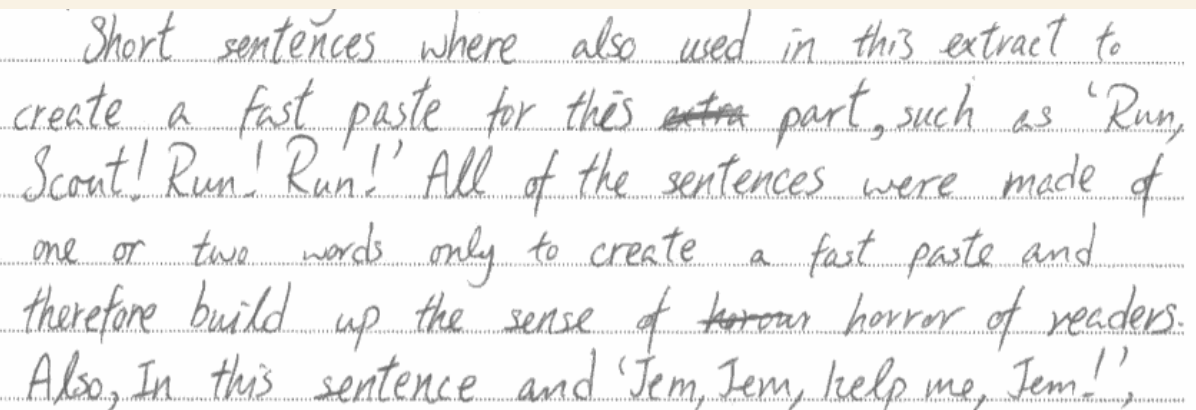 Short sentences where also used in this extract to
create a fast paste for this extra part, such as 'Run,
Scout! Run! Run!' All of the sentences were made of
one or two words only to create a fast paste and
therefore build up the sense of horour horror of readers.
Also, In this sentence and 'Jem, Jem, help me, Jem!',